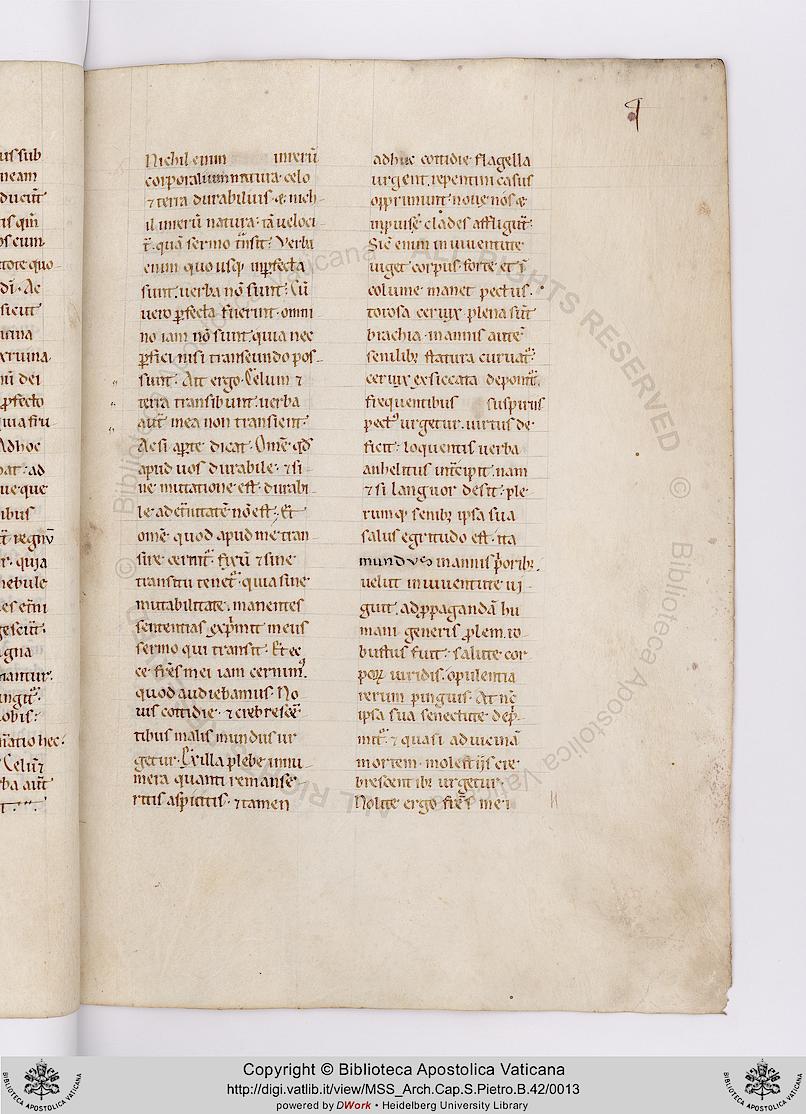 us sub
neam
ducit̄
tis qm̄
os cum
tote quo-
di. Ac
sicut
ruina
nū dei
ꝑfecto
quia fru-
Ad hoc
bat: ad
ue que
ibus
regnū
r. quia
nebule
es et̄ni
gescit̄.
gna
nantur.
obis:
Celū ⁊
ba aut̄
Nichil enim in rerū
corporalium natura celo
⁊ terra durabilius. & nich-
il in rerū natura. tā veloci-
t̄. quā sermo tn̄sit: Verba
enim quo usq; inꝑfecta
sunt. verba nō sunt: Cū
vero ꝑfecta fuerint. omni
no iam nō sunt. quia nec
ꝑfici nisi transeundo pos-
sunt: Ait ergo. Celum ⁊
terra transibunt. verba
aut̄ mea non transient:
Ac si aꝑte dicat. Om̄e qd̄
apud vos durabile. ⁊ si-
ne mutatione est. durabi-
le ad et̄nitatē nō est: Et
om̄e quod apud me tran-
sire cernit᷑. fixū ⁊ sine
transitu tenet᷑. quia sine
mutabilitate. manentes
sententias exprimit meus
sermo qui transit: Et ec
ce fr̄es mei iam cernim᷒.
quod audiebamus. No
uis cottidie. ⁊ crebresce᷑
tibus malis mundus ur
getur. Ex illa plebe innu-
mera quanti remanse-
ritis aspicitis. ⁊ tamen
adhuc cottidie flagella
urgent. repentini casus
opprimunt. nove nos &
inpuise clades affligut̄:
Sic enim in iuventute
viget corpus. forte et ī
colume manet pectus.
torosa cervix. plena sūt
brachia. in annis autē
senilib; statura curvat᷑.
cervix exsiccata deponit᷑.
frequentibus suspiriis
pect᷒ urgetur. virtus de-
ficit: loquentis verba
anhelitus int̄cipit. nam
⁊ si languor desit. ple-
rumq; senib; ipsa sua
salus egritudo est. ita
mundus in annis priorib;
velut in iuventute vi-
guit. ad ꝓpagandā hu
mani generis prolem. ro-
bustus fuit: salute cor
poꝝ viridis. opulentia
rerum pinguis. At nc̄
ipsa sua senectute depri
mit᷑. ⁊ quasi ad vicinā
mortem. molestiis cre-
brescentib; urgetur.
Nolite ergo fr̄es mei
Copyright © Biblioteca Apostolica Vaticana
http://digi.vatlib.it/view/MSS_Arch.Cap.S.Pietro.B.42/0013
powered by DWork • Heidelberg University Library
BIBLIOTECA APOSTOLICA VATICANA
BIBLIOTECA APOSTOLICA VATICANA
© Biblioteca Apostolica Vaticana ALL RIGHTS RESERVED
© Biblioteca Apostolica Vaticana ALL RIGHTS RESERVED